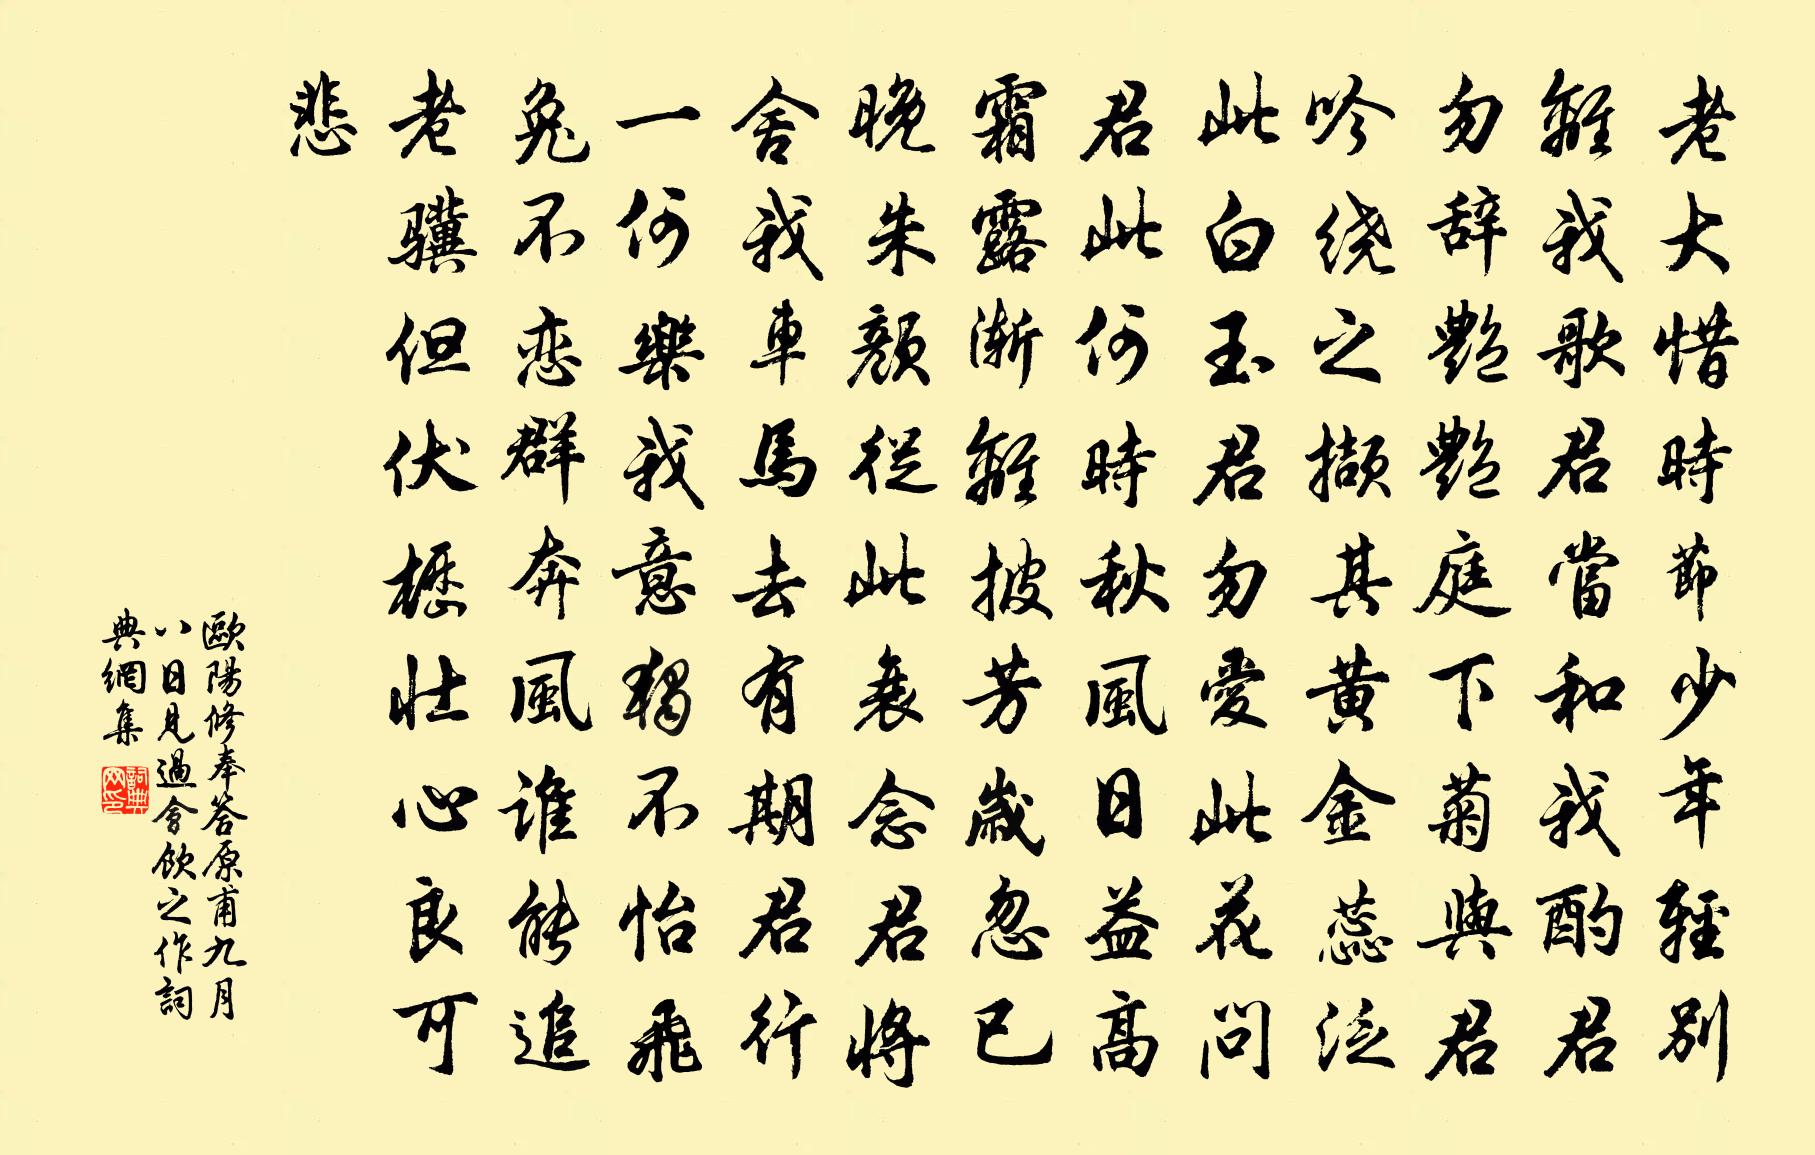 老大惜時節少年輕別
離我歌君當和我酌君
勿辞艷艷庭下菊與君
吟绕之擷其黄金蕊泛
此白玉君勿愛此花問
君此何時秋風日益高
霜露漸離披芳歲忽已
晚朱顏從此衰念君將
舍我車馬去有期君行
一何樂我意獨不怡飛
兔不恋群奔風谁能追
老骥但伏櫪壮心良可
悲
歐陽修奉答原甫九月
八日見過會飲之作詞
典網集
詞典